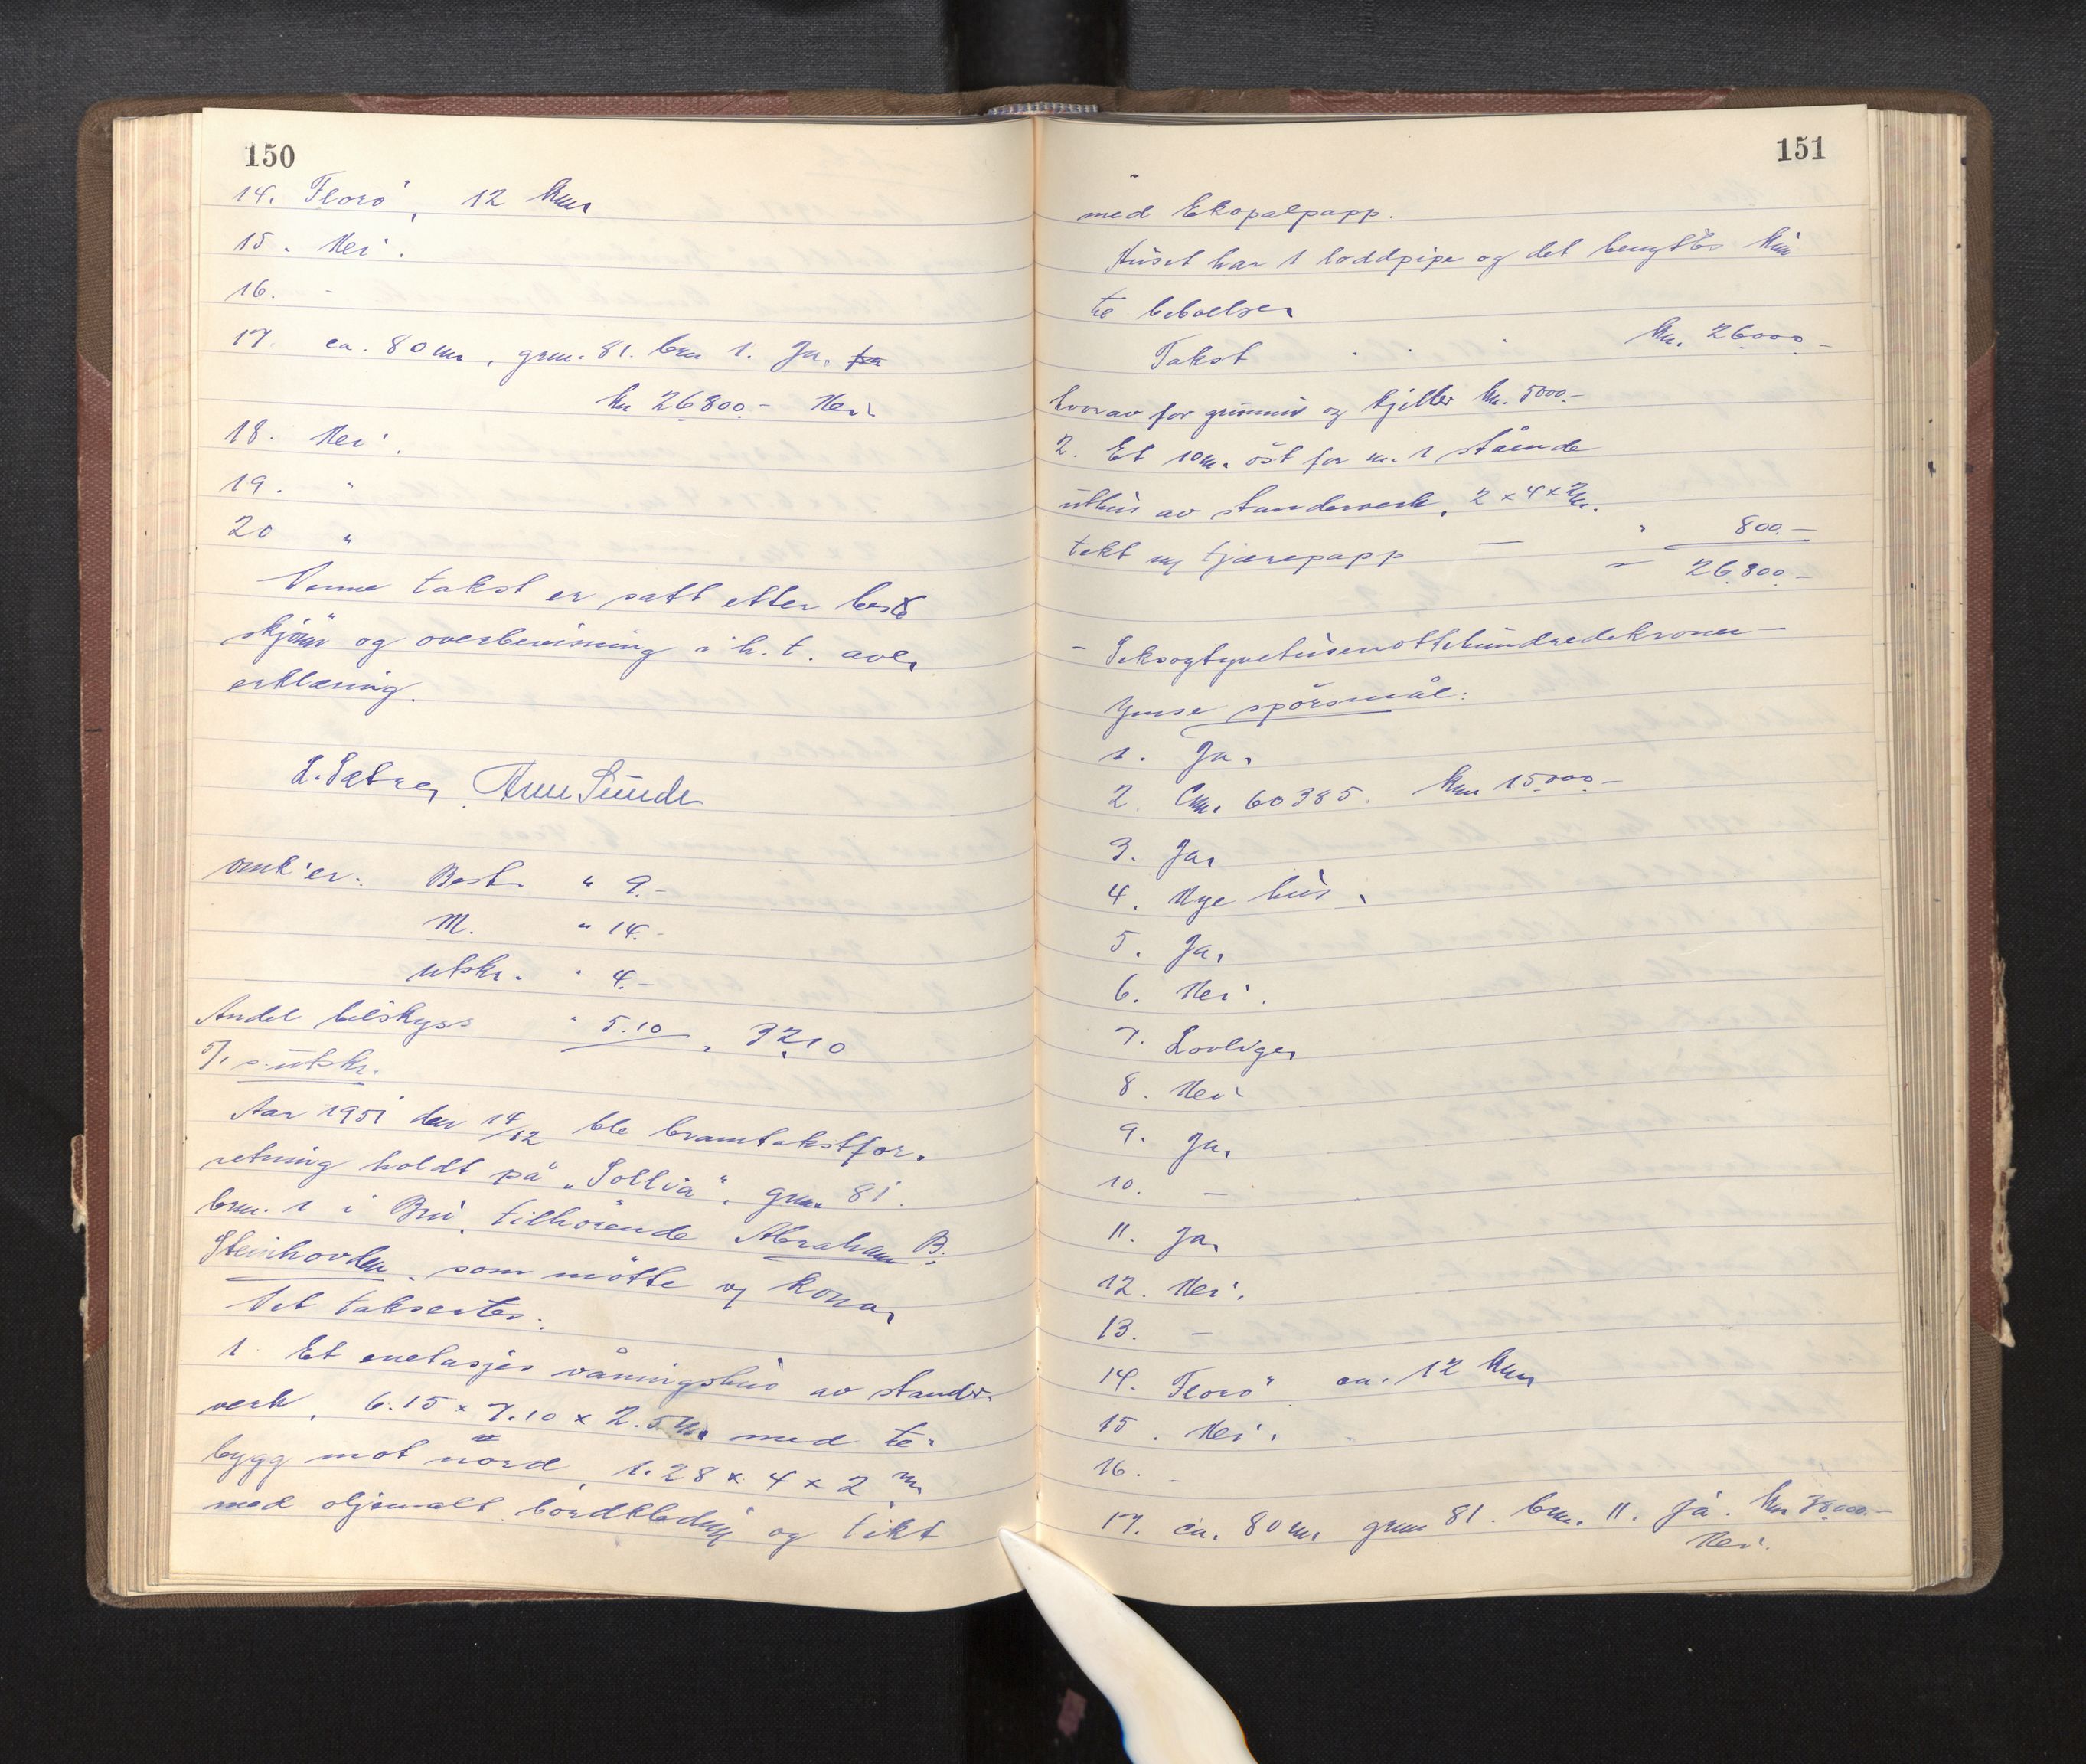 150
14. Florö, 12 km
15. Nei.
16. -
17. ca. 80 m, gnr. 81. bnr 1. Ja.
kr 26800.- Nei
18. Nei.
19. "
20 "
Denne takst er satt etter beste
skjönn og overbevisning i h. t. avl.
erklæring.
L. Sætre, Arne Sunde
omk'er: Best. " 9.-
M. " 14.-
utskr. " 4.-
Andel bilskyss " 5.10 " 32.10
5/1 s. utskr.
Aar 1951 den 14/12 ble branntakstfor-
retning holdt på "Sollia", gnr. 81.
bnr. 1 i Bru, tilhörende Abraham B.
Steinhovden, som mötte og kona.
Det taksertes:
1. Et enetasjes våningshus av stender-
verk, 6.15 x 7.10 x 2.5 m. med til-
bygg mot nord, 1.28 x 4 x 2 m
med oljemalt bordkledning og tekt
151
med Ekopalpapp.
Huset har 1 loddpipe og det benyttes kun
til beboelse.
Takst . . . kr. 26000.-
hvorav for grunnmur og kjeller kr. 5000.-
2. Et 10 m. öst for nr. 1 stående
uthus av stenderverk, 2 x 4 x 2 m.
tekt m/ tjærepapp — " 800.-
" 26.800.-
- Seksogtyvetusenottehundredekroner -
Ymse spörsmål:
1. Ja.
2. Cnr. 60385. kr. 15.000.-
3. Ja.
4. Nye hus.
5. Ja.
6. Nei.
7. Lovlige.
8. Nei
9. Ja.
10. -
11. Ja.
12. Nei.
13. -
14. Florö ca. 12 km
15. Nei.
16. -
17. ca. 80 m. gnr 81. bnr. 11. Ja. kr 38.000.-
Nei.